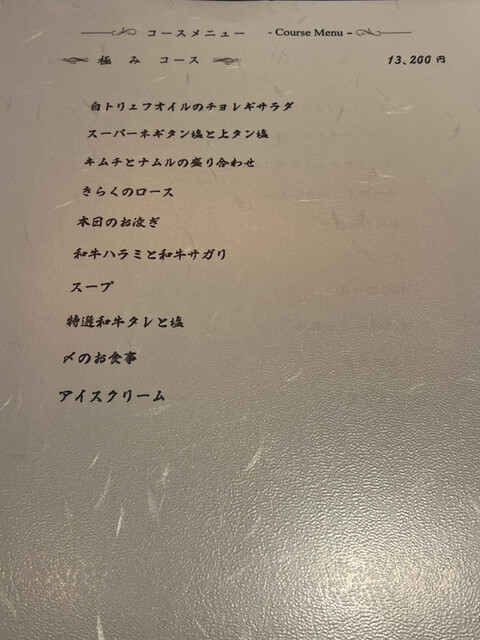 コースメニュー - Course Menu -
極み コース 13,200円
白トリュフオイルのチョレギサラダ
スーパーネギタン塩と上タン塩
キムチとナムルの盛り合わせ
きらくのロース
本日のお凌ぎ
和牛ハラミと和牛サガリ
スープ
特選和牛タレと塩
〆のお食事
アイスクリーム